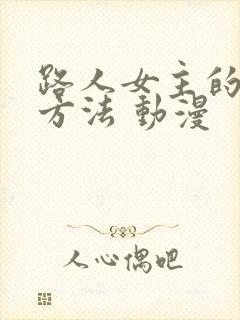 路人女主的
方法 動漫
人心偶吧